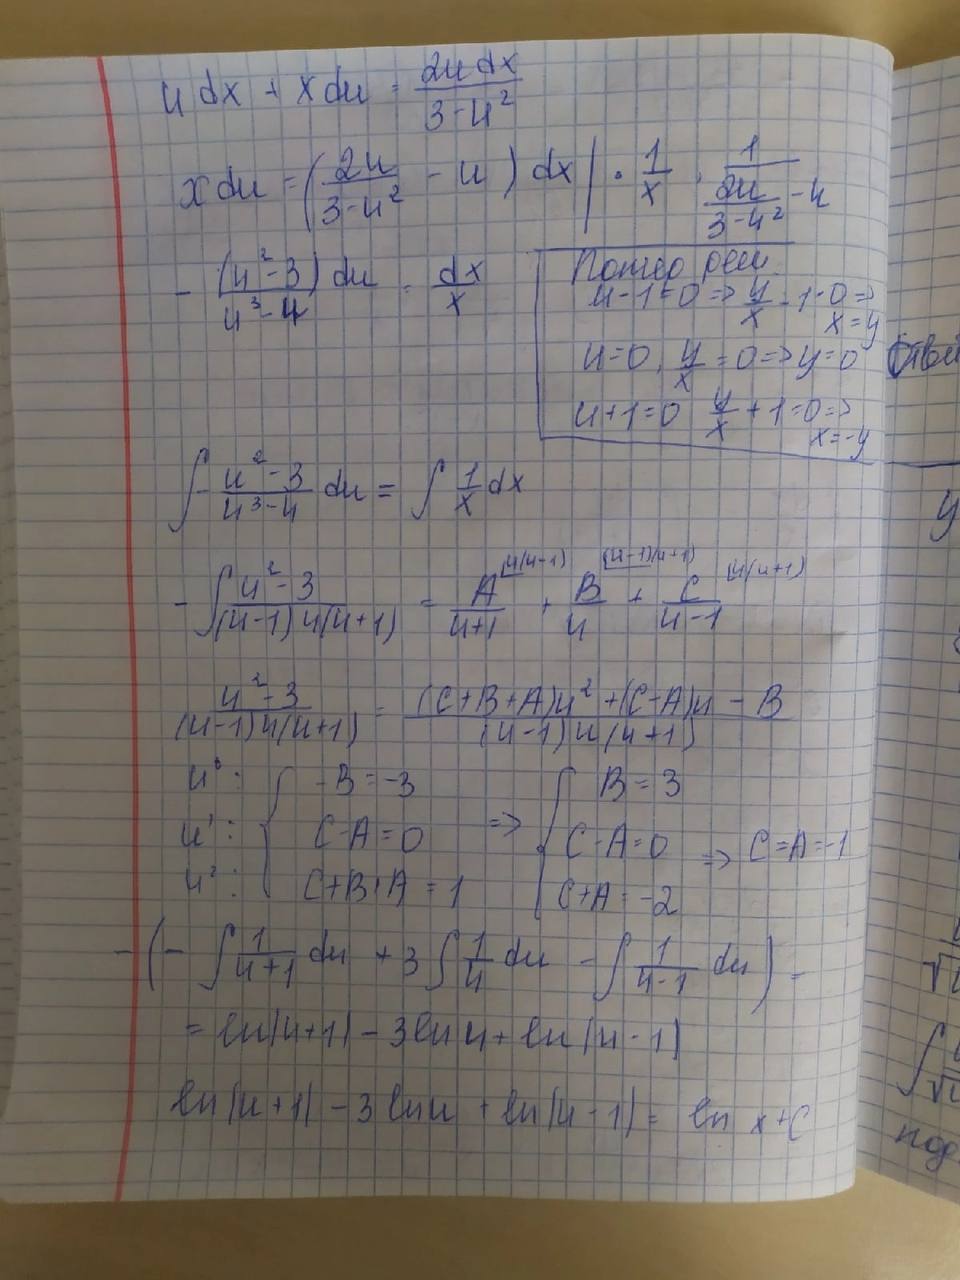 u dx + x du = \frac{2u dx}{3-u^2}
x du = (\frac{2u}{3-u^2} - u) dx | \cdot \frac{1}{x} \cdot \frac{1}{\frac{2u}{3-u^2} - u}
- \frac{(u^2-3) du}{u^3-u} = \frac{dx}{x}
Потеря реш.
u-1=0 => \frac{y}{x} - 1=0 =>
x=y
u=0, \frac{y}{x} = 0 => y=0
u+1=0 \frac{y}{x} + 1=0 =>
x=-y
\int - \frac{u^2-3}{u^3-u} du = \int \frac{1}{x} dx
- \int \frac{u^2-3}{(u-1)u(u+1)} = \frac{A}{u+1}^{|u(u-1)} + \frac{B}{u}^{|(u-1)(u+1)} + \frac{C}{u-1}^{|u(u+1)}
\frac{u^2-3}{(u-1)u(u+1)} = \frac{(C+B+A)u^2+(C-A)u-B}{(u-1)u(u+1)}
u^0: { -B=-3 => { B=3
u^1: { C-A=0 { C-A=0 => C=A=-1
u^2: { C+B+A=1 { C+A=-2
-(- \int \frac{1}{u+1} du + 3 \int \frac{1}{u} du - \int \frac{1}{u-1} du) =
= ln|u+1| - 3 ln u + ln|u-1|
ln|u+1| - 3 ln u + ln|u-1| = ln x+C